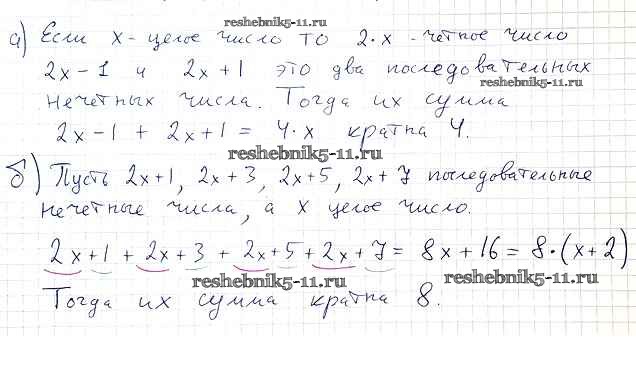 reshebnik5-11.ru
а) Если x - целое число то 2·x - четное число
2x - 1 и 2x + 1 это два последовательных
reshebnik5-11.ru
нечетных числа. Тогда их сумма
2x - 1 + 2x + 1 = 4·x кратна 4.
reshebnik5-11.ru
б) Пусть 2x+1, 2x+3, 2x+5, 2x+7 последовательные
нечетные числа, а x целое число.
2x + 1 + 2x + 3 + 2x + 5 + 2x + 7 = 8x + 16 = 8·(x+2)
reshebnik5-11.ru reshebnik5-11.ru
Тогда их сумма кратна 8.